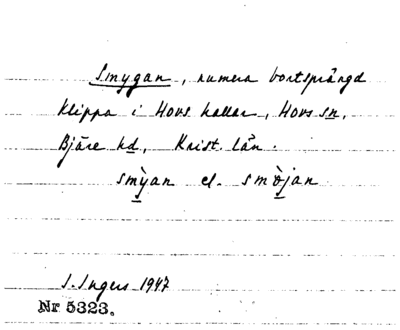 Smygan, numera bortsprängd
klippa i Hovs hallar, Hovs sn,
Bjäre hd, Krist. län.
smỳan el. smø̀jan
I. Ingers 1947
Nr 5323.